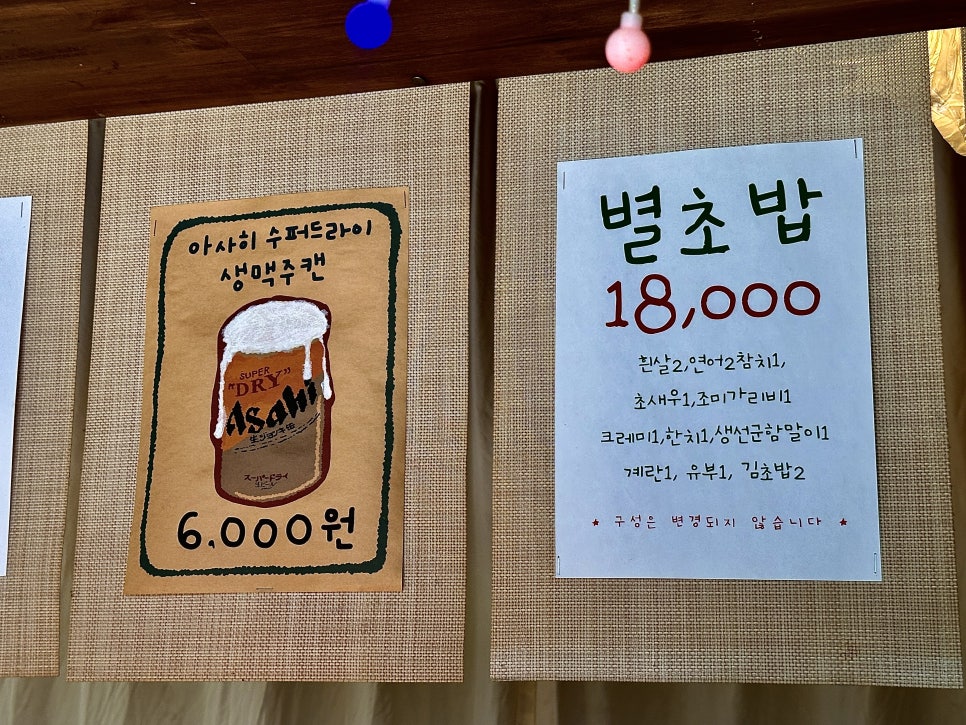 아사히 수퍼드라이
생맥주캔
SUPER
"DRY"
Asahi
スーパードライ
6,000원
별초밥
18,000
흰살2,연어2참치1,
초새우1,조미가리비1
크레미1,한치1,생선군함말이1
계란1, 유부1, 김초밥2
★ 구성은 변경되지 않습니다 ★